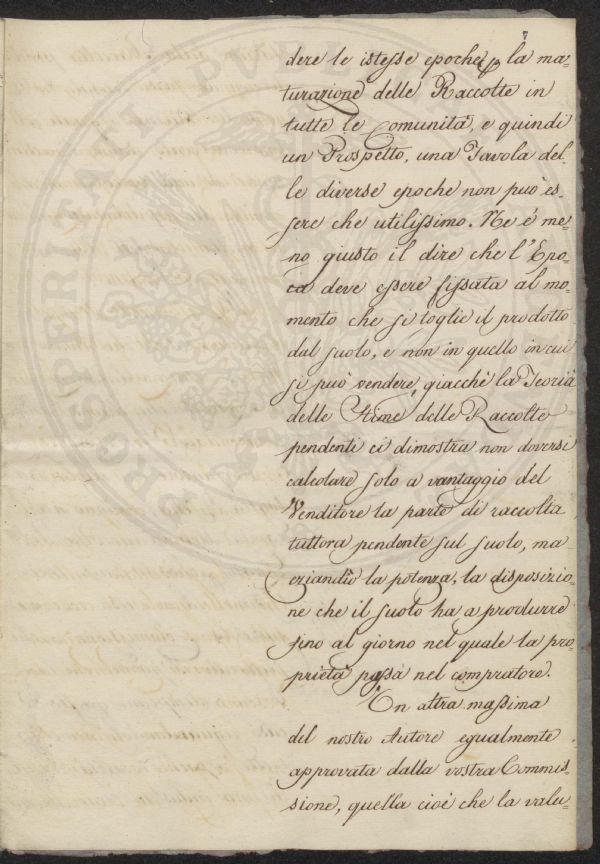 7
dere le istesse epoche p la ma-
turazione delle Raccolte in
tutte le Comunità, e quindi
un Prospetto, una Tavola del-
le diverse epoche non può es-
sere che utilissimo. Ne è me-
no giusto il dire che l'Epo-
ca deve essere fissata al mo-
mento che si toglie il prodotto
dal suolo, e non in quello in cui
si può vendere, giacchè la Teoria
delle Stime delle Raccolte
pendenti ci dimostra non doversi
calcolare solo a vantaggio del
Venditore la parte di raccolta
tuttora pendente sul suolo, ma
eziandìo la potenza, la disposizio-
ne che il suolo ha a produrre
fino al giorno nel quale la pro-
prietà passa nel compratore.
Un altra massima
del nostro Autore egualmente
approvata dalla vostra Commis-
sione, quella cioè che la valu-
PROSPERITATI PUBL